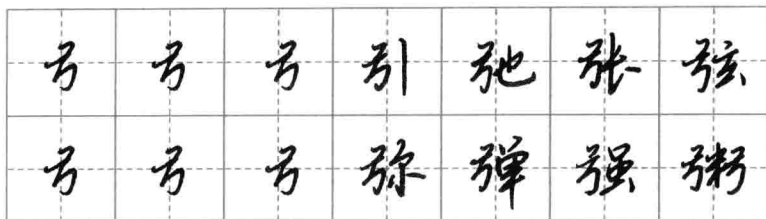 弓 弓 弓 引 弛 张 弦
弓 弓 弓 弥 弹 强 粥